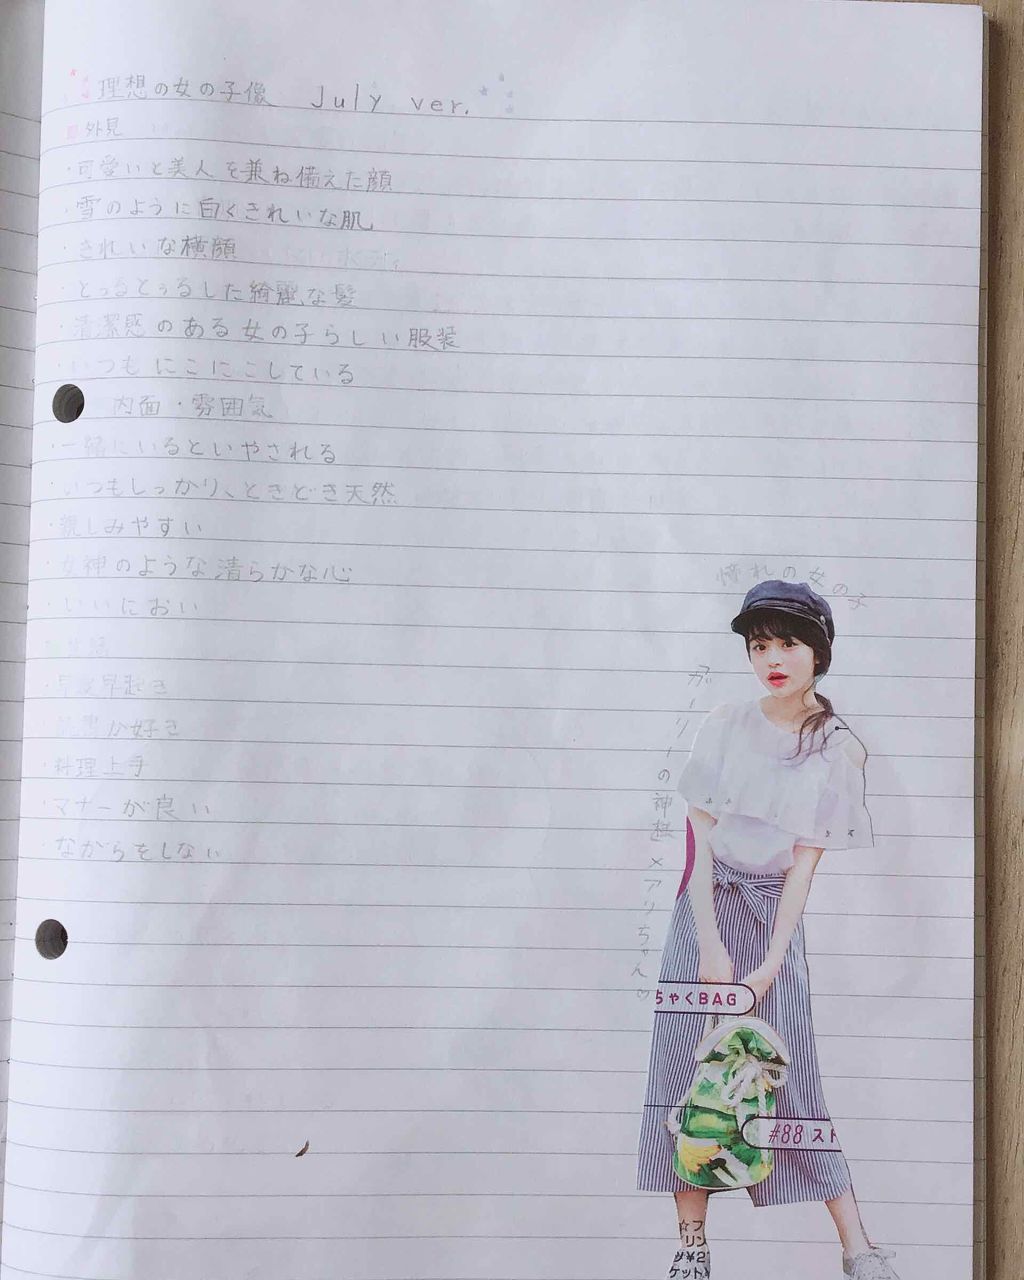 理想の女の子像 July ver.
外見
・可愛いと美人を兼ね備えた顔
・雪のように白くきれいな肌
・きれいな横顔
・とぅるとぅるした綺麗な髪
・清潔感のある女の子らしい服装
・いつもにこにこしている
内面・雰囲気
・一緒にいるといやされる
・いつもしっかり、ときどき天然
・親しみやすい
・女神のような清らかな心
・いいにおい
・早寝早起き
・読書が好き
・料理上手
・マナーが良い
・ながらをしない
憧れの女の子
ガーリーの神様×アリちゃん♡
ちゃくBAG
#88 スト
☆フ
リン
ツ¥2
ケット